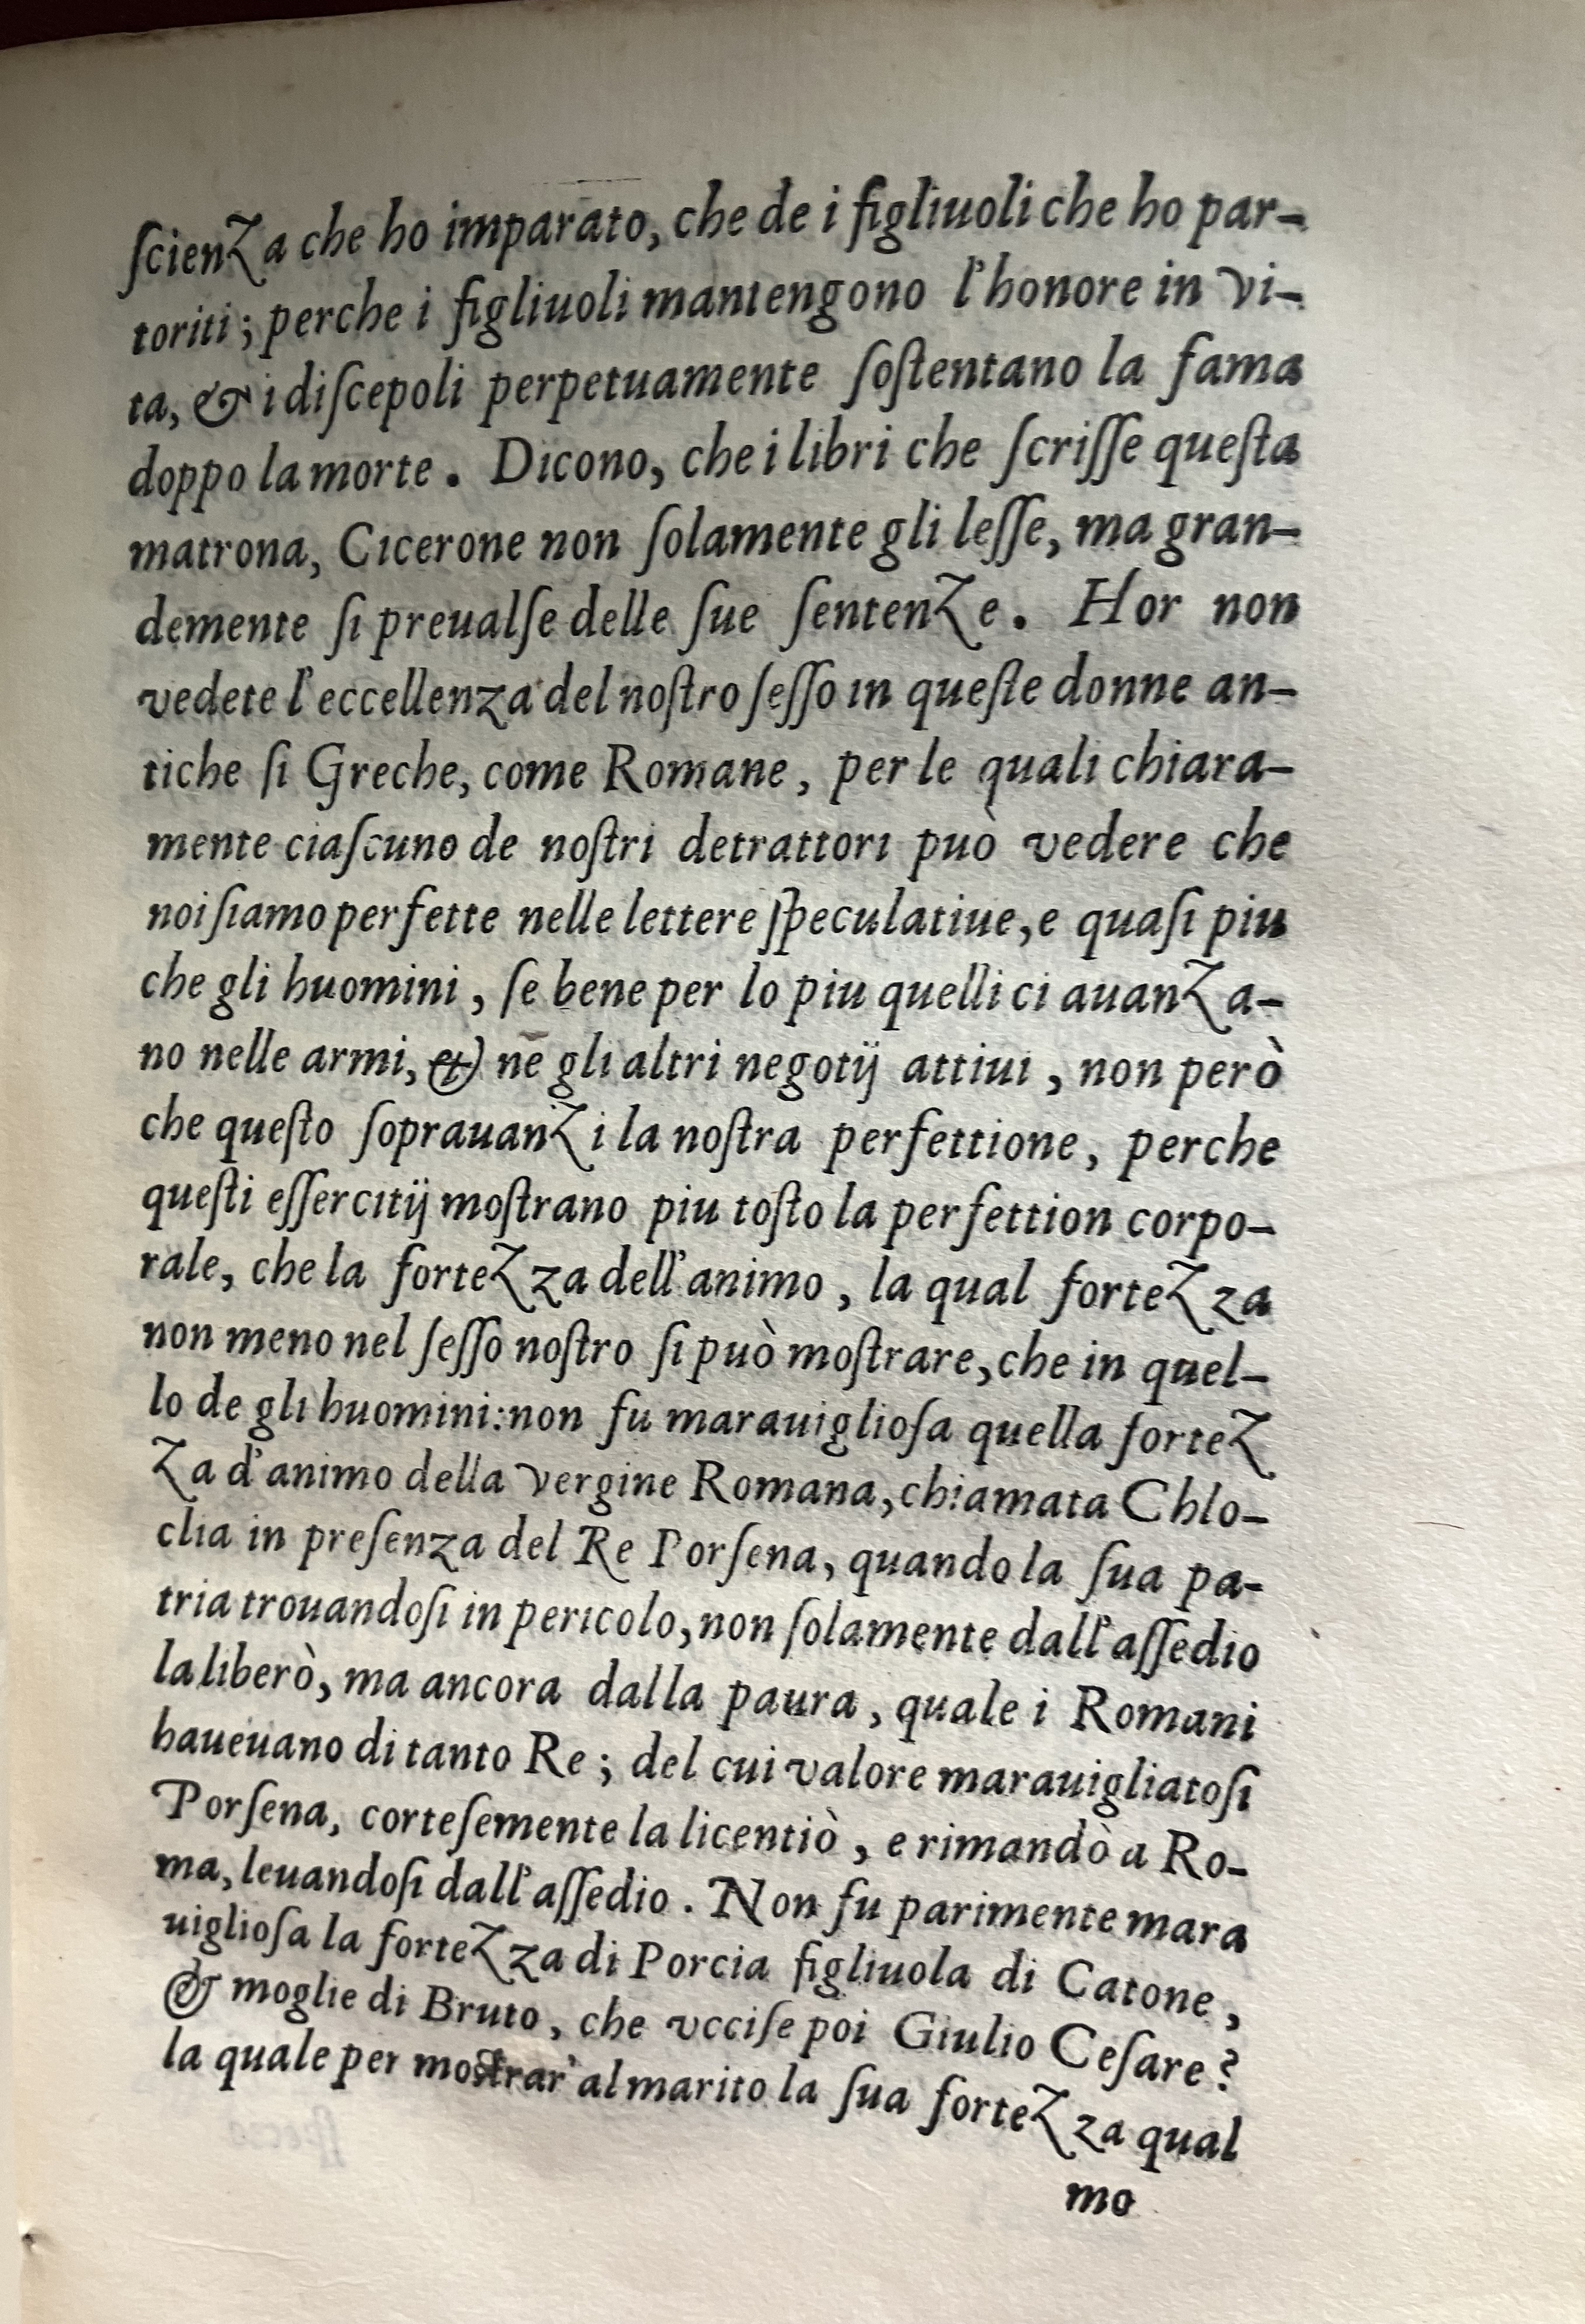 ſcienza che ho imparato, che de i figliuoli che ho par-
toriti; perche i figliuoli mantengono l'honore in vi-
ta, & i diſcepoli perpetuamente ſoſtentano la fama
doppo la morte. Dicono, che i libri che ſcriſſe queſta
matrona, Cicerone non ſolamente gli leſſe, ma gran-
demente ſi preualſe delle ſue ſentenze. Hor non
vedete l'eccellenza del noſtro ſeſſo in queſte donne an-
tiche ſi Greche, come Romane, per le quali chiara-
mente ciaſcuno de noſtri detrattori può vedere che
noi ſiamo perfette nelle lettere ſpeculatiue, e quaſi piu
che gli huomini, ſe bene per lo piu quelli ci auanza-
no nelle armi, & ne gli altri negotij attiui, non però
che queſto ſoprauanzi la noſtra perfettione, perche
queſti eſſercitij moſtrano piu toſto la perfettion corpo-
rale, che la fortezza dell'animo, la qual fortezza
non meno nel ſeſſo noſtro ſi può moſtrare, che in quel-
lo de gli huomini: non fu marauiglioſa quella fortez
za d'animo della vergine Romana, chiamata Chlo-
clia in preſenza del Re Porſena, quando la ſua pa-
tria trouandoſi in pericolo, non ſolamente dall'aſſedio
la liberò, ma ancora dalla paura, quale i Romani
haueuano di tanto Re; del cui valore marauigliatoſi
Porſena, corteſemente la licentiò, e rimandò a Ro-
ma, leuandoſi dall'aſſedio. Non fu parimente mara
uiglioſa la fortezza di Porcia figliuola di Catone,
& moglie di Bruto, che vcciſe poi Giulio Ceſare?
la quale per moſtrar' al marito la ſua fortezza qual
mo